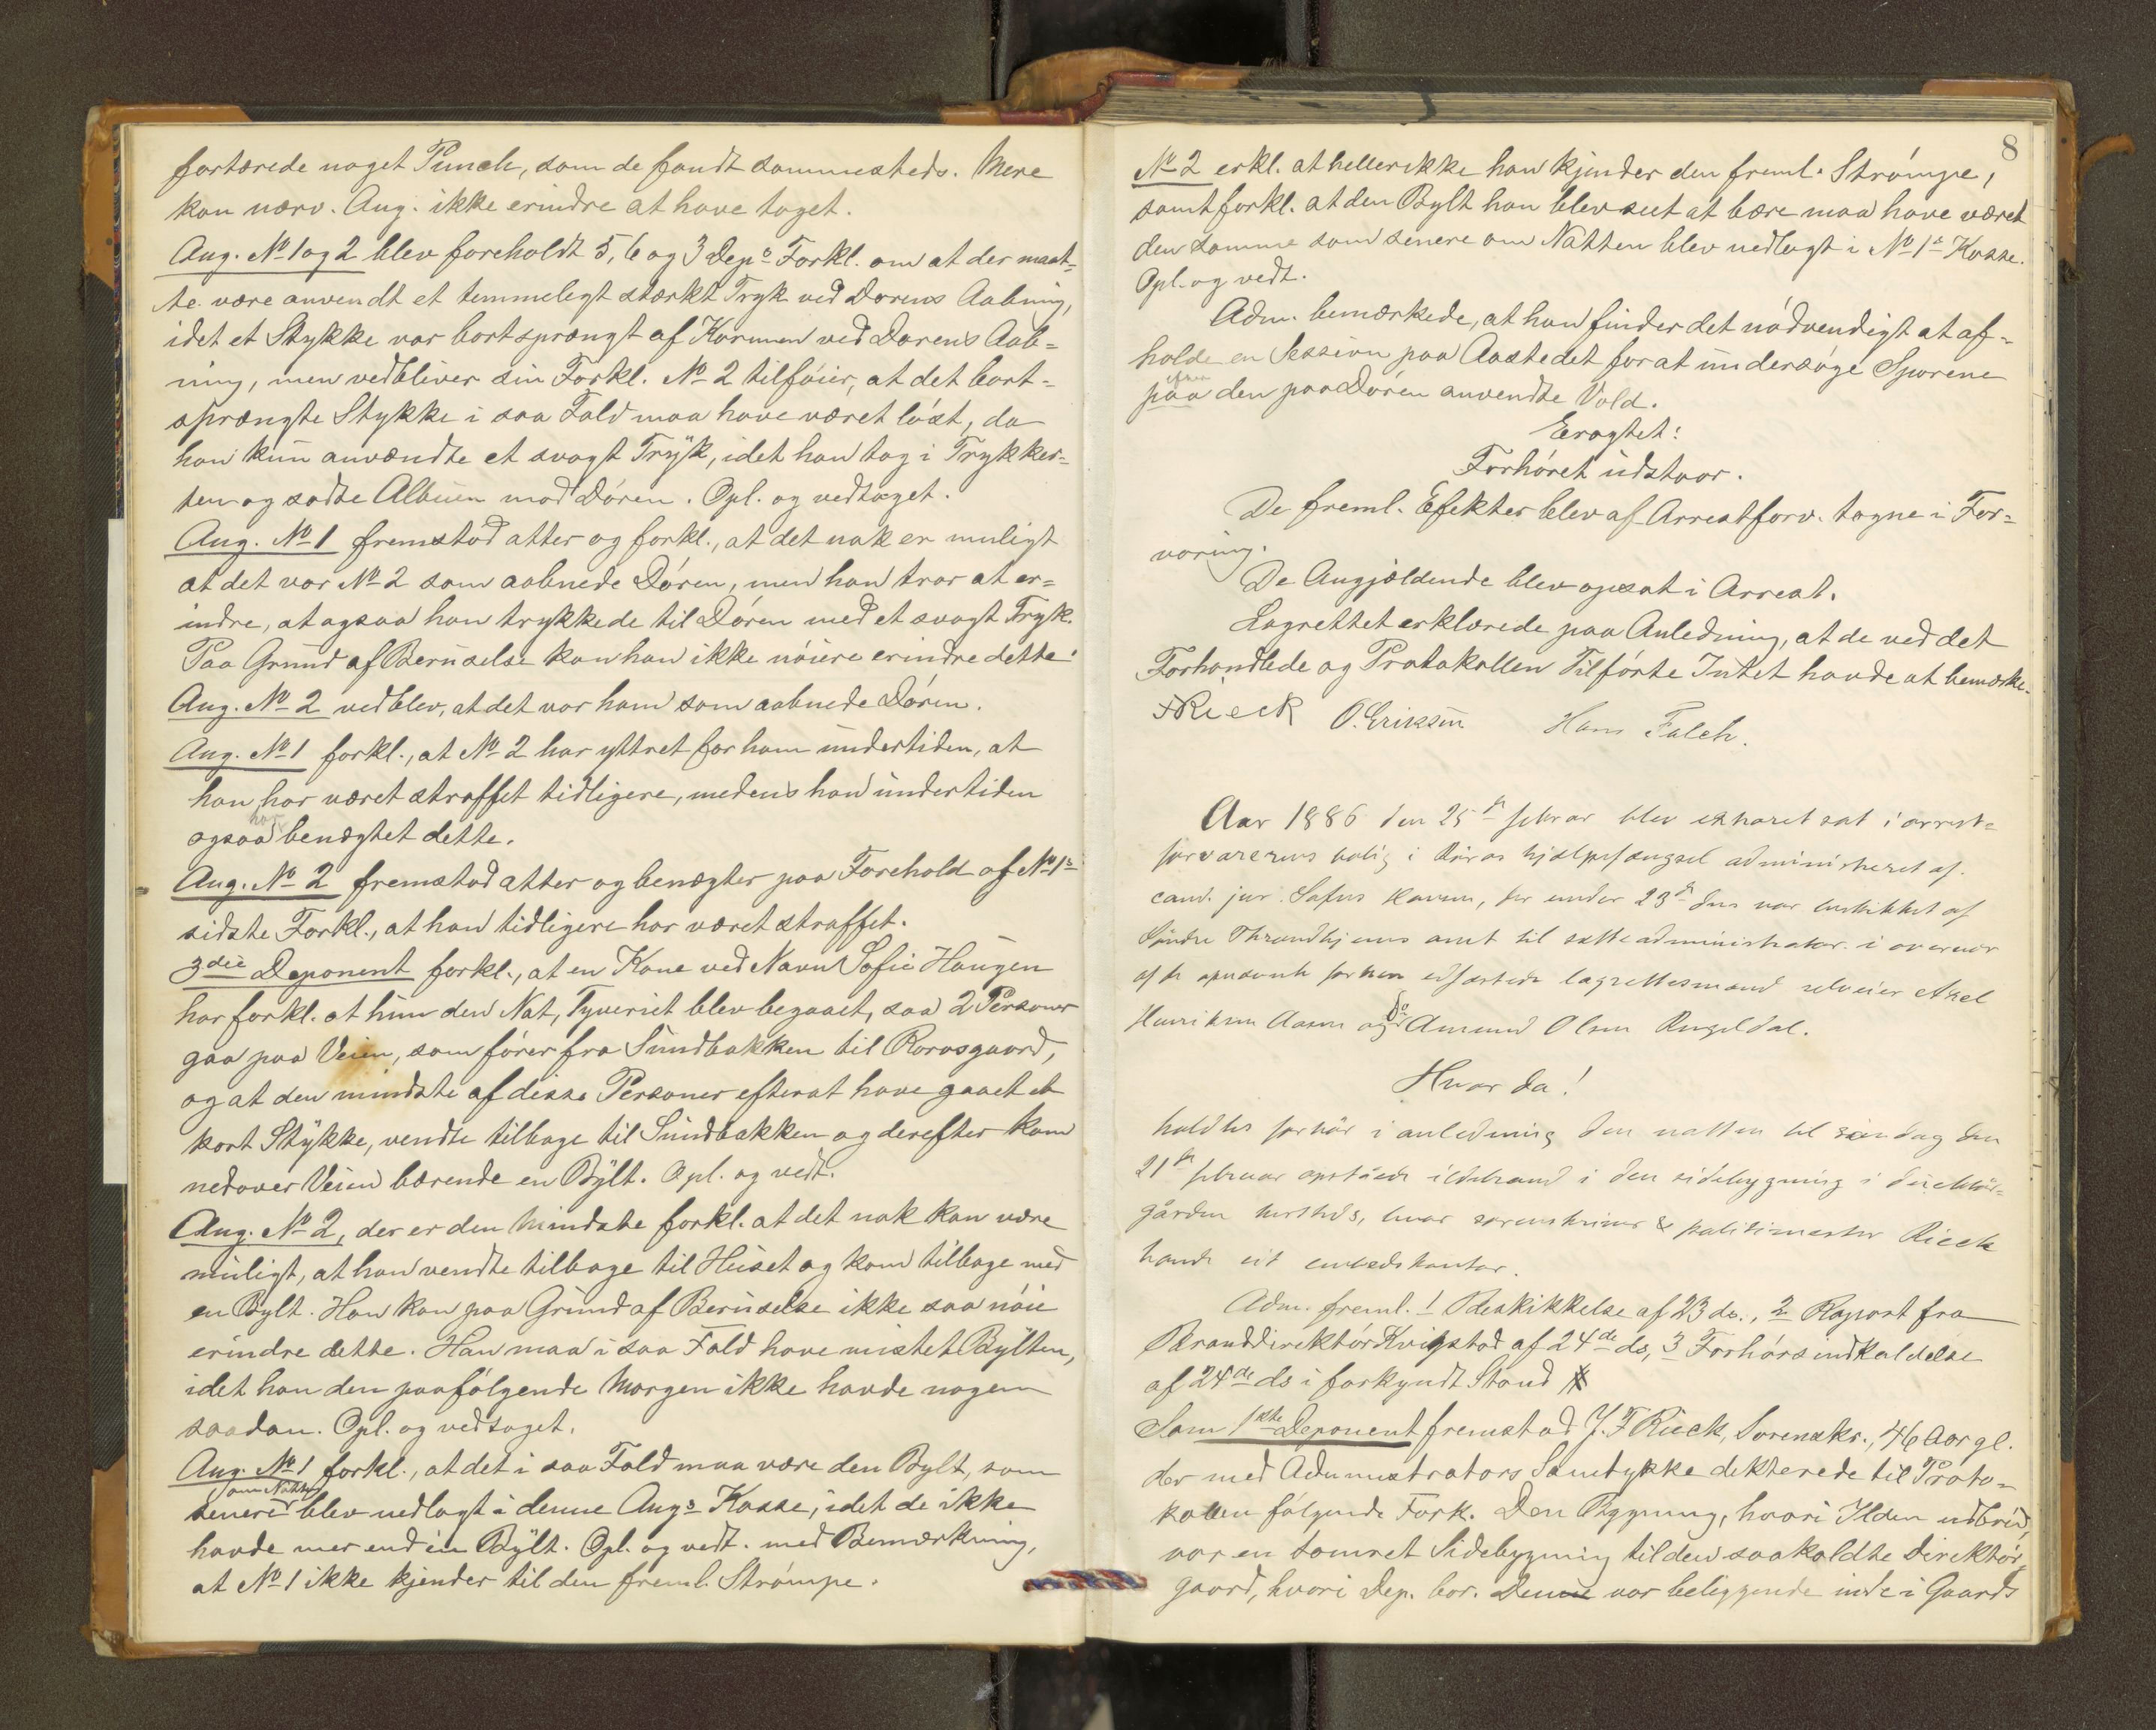 fortærede noget Punch, som de fandt sammesteds. Mere
kan nærv. Ang. ikke erindre at have taget.
Ang. No 1 og 2 blev foreholdt 5, 6 og 3 Deps Forkl. om at der maat-
te være anvendt et temmeligt stærkt Tryk ved Dørens Aabning,
idet et Stykke var bortsprængt af Karmen ved Dørens Aab-
ning, men vedbliver sin Forkl. No 2 tilføier, at det bort-
sprængte Stykke i saa Fald maa have været løst, da
han kun anvendte et svagt Tryk, idet han tog i Trykker-
ten og sadte Albuen mod Døren. Opl. og vedtaget.
Ang. No 1 fremstod atter og forkl., at det nok er muligt
at det var No 2 som aabnede Døren, men han tror at er-
indre, at ogsaa han trykkede til Døren med et svagt Tryk.
Paa Grund af Beruselse kan han ikke nøiere erindre dette.
Ang. No 2 vedblev, at det var ham som aabnede Døren.
Ang. No 1 forkl., at No 2 har yttret for ham undertiden, at
han har været straffet tidligere, medens han undertiden
ogsaa har benægtet dette.
Ang. No 2 fremstod atter og benægter paa Forehold af No 1s
sidste Forkl., at han tidligere har været straffet.
3die Deponent forkl., at en Kone ved Navn Sofie Haugen
har forkl. at hun den Nat, Tyveriet blev begaaet, saa 2 Personer
gaa paa Veien, som fører fra Sundbakken til Rørosgaard,
og at den mindste af disse Personer efterat have gaaet et
kort Stykke, vendte tilbage til Sundbakken og derefter kom
nedover Veien bærende en Bylt. Opl. og vedt.
Ang. No 2, der er den Mindste forkl. at det nok kan være
muligt, at han vendte tilbage til Huset og kom tilbage med
en Bylt. Han kan paa Grund af Beruselse ikke saa nøie
erindre dette. Han maa i saa Fald have mistet Bylten,
idet han den paafølgende Morgen ikke havde nogen
saadan. Opl. og vedtaget.
Ang. No 1 forkl., at det i saa Fald maa være den Bylt, som
senere om Natten blev nedlagt i denne Angs Kasse, idet de ikke
havde mer end én Bylt. Opl. og vedt. med Bemærkning,
at No 1 ikke kjender til den freml. Strømpe.
8
No 2 erkl. at heller ikke han kjender den freml. Strømpe,
samt forkl. at den Bylt han blev seet at bære maa have været
den samme som senere om Natten blev nedlagt i No 1s Kasse.
Opl. og vedt.
Adm. bemærkede, at han finder det nødvendigt at af-
holde en Session paa Aastedet for at undersøge Sporene
paa den paa Døren anvendte Vold.
Eragtet:
Forhøret udstaar.
De freml. Efekter blev af Arrestforv. tagne i For-
varing.
De Angjældende blev opsat i Arrest.
Lagrettet erklærede paa Anledning, at de ved det
Forhandlede og Protokollen Tilførte Intet havde at bemærke.
FRieck O. Eriksen Hans Falch.
Aar 1886 den 25de februar blev extraret sat i arrest-
forvarerens bolig i Røros hjælpefængsel administreret af
cand. jur. Sofus, der under 23de dns var beskikket af
Søndre Throndhjems amt til sætteadministrator i overvær
af de opnævnte forhen edfæstede lagrettesmænd selveier Axel
Henriksen Aasen og do Amund Olsen Engeldal.
Hvor da!
holdtes forhør i anledning den natten til søndag den
21de februar opståede ildebrand i den sidebygning i direktør-
gården hersteds, hvor sorenskriver & politimester Rieck
havde sit embedskontor.
Adm. freml. 1 Beskikkelse af 23 ds., 2 Raport fra
Branddirektør Kvigstad af 24de ds, 3 Forhørsindkaldelse
af 24de ds i forkyndt Stand
Som 1ste Deponent fremstod J. F Rieck, Sorenskr., 46 Aar gl.
der med Administrators Samtykke dikterede til Proto-
kollen følgende Fork. Den Bygning, hvori Ilden udbrød,
var en tømret Sidebygning til den saakaldte Direktør
gaard, hvori Dep. bor. Denne var beliggende inde i Gaards